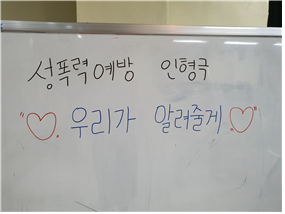 성폭력예방 인형극
"♡. 우리가 알려줄게 .♡"